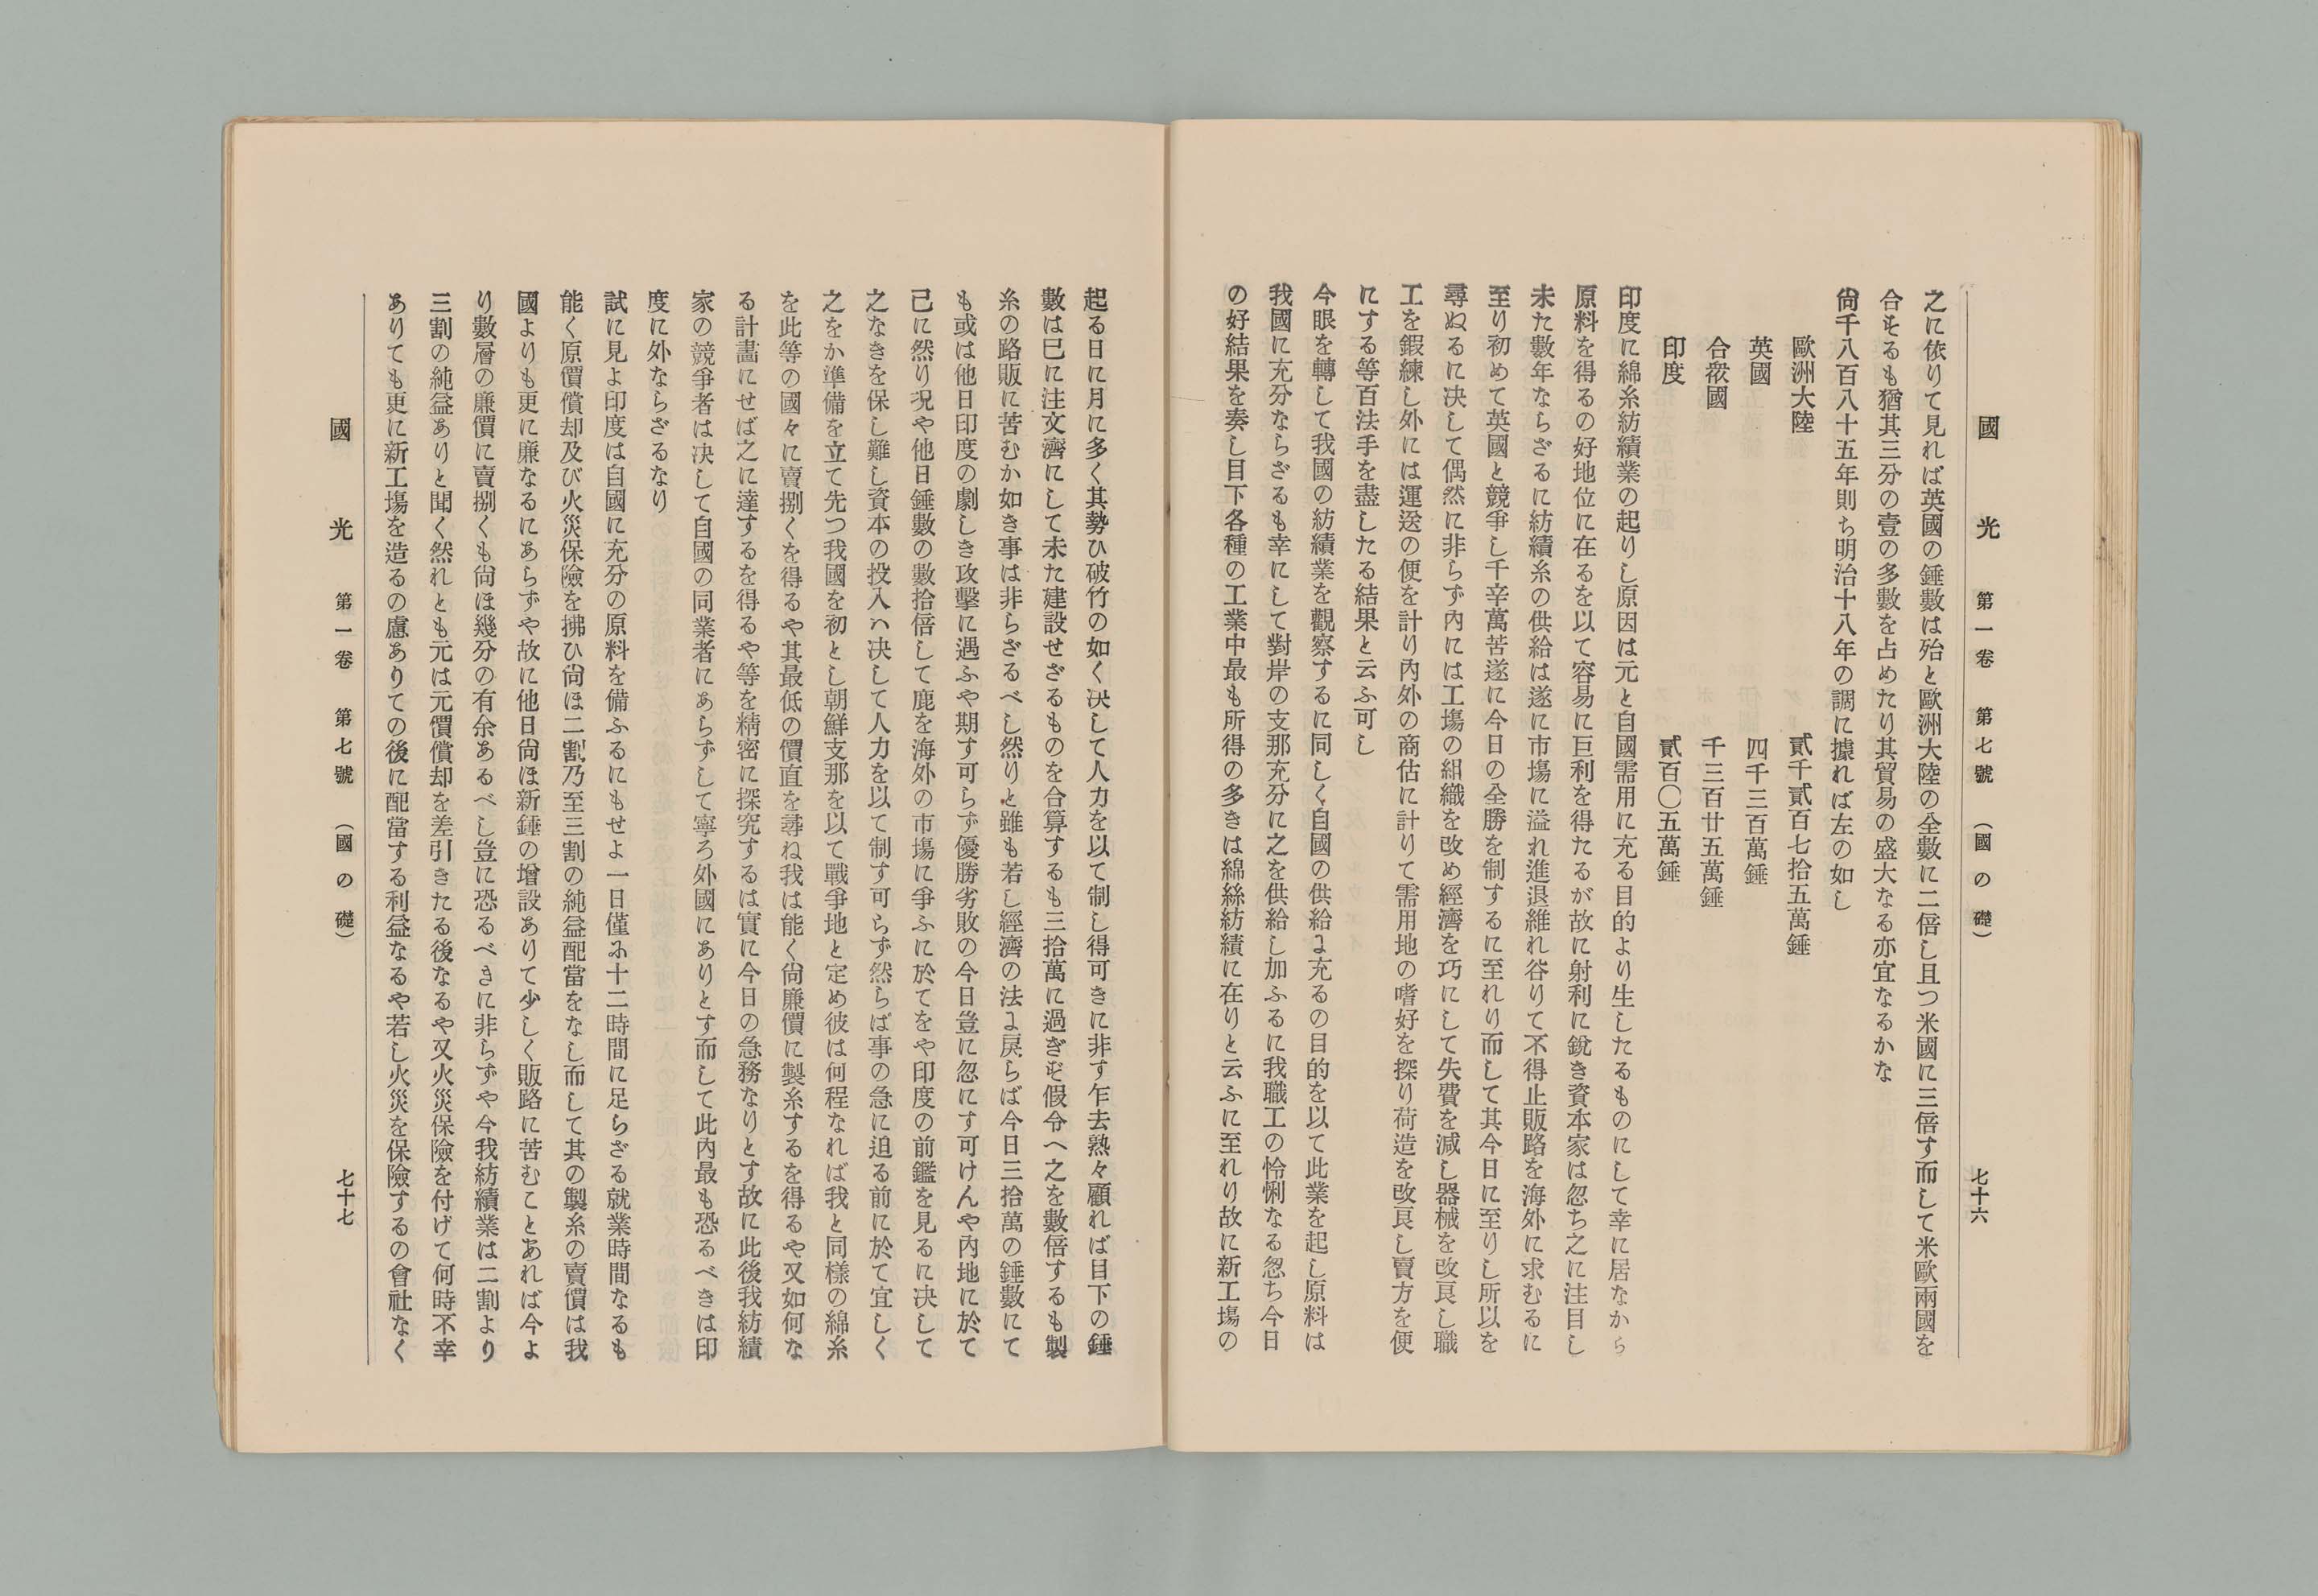 國光 第一卷 第七號 (國の礎) 七十六
之に依りて見れば英國の錘數は殆と歐洲大陸の全數に二倍し且つ米國に三倍す而して米歐兩國を
合するも猶其三分の壹の多數を占めたり其貿易の盛大なる亦宜なるかな
尙千八百八十五年則ち明治十八年の調に據れば左の如し
歐洲大陸 貳千貳百七拾五萬錘
英國 四千三百萬錘
合衆國 千三百廿五萬錘
印度 貳百〇五萬錘
印度に綿糸紡績業の起りし原因は元と自國需用に充る目的より生したるものにして幸に居なから
原料を得るの好地位に在るを以て容易に巨利を得たるが故に射利に銳き資本家は忽ち之に注目し
未た數年ならざるに紡績糸の供給は遂に市塲に溢れ進退維れ谷りて不得止販路を海外に求むるに
至り初めて英國と競爭し千辛萬苦遂に今日の全勝を制するに至れり而して其今日に至りし所以を
尋ぬるに决して偶然に非らず內には工塲の組織を改め經濟を巧にして失費を減し器械を改良し職
工を鍜練し外には運送の便を計り內外の商估に計りて需用地の嗜好を探り荷造を改良し賣方を便
にする等百法手を盡したる結果と云ふ可し
今眼を轉して我國の紡績業を觀察するに同しく自國の供給に充るの目的を以て此業を起し原料は
我國に充分ならざるも幸にして對岸の支那充分に之を供給し加ふるに我職工の怜悧なる忽ち今日
の好結果を奏し目下各種の工業中最も所得の多きは綿絲紡績に在りと云ふに至れり故に新工塲の
起る日に月に多く其勢ひ破竹の如く决して人力を以て制し得可きに非す乍去熟々顧れば目下の錘
數は已に注文濟にして未た建設せざるものを合算するも三拾萬に過ぎず假令へ之を數倍するも製
糸の路販に苦むか如き事は非らざるべし然りと雖も若し經濟の法に戾らば今日三拾萬の錘數にて
も或は他日印度の劇しき攻擊に遇ふや期す可らず優勝劣敗の今日豈に忽にす可けんや內地に於て
己に然り况や他日錘數の數拾倍して鹿を海外の市塲に爭ふに於てをや印度の前鑑を見るに决して
之なきを保し難し資本の投入ハ决して人力を以て制す可らず然らば事の急に迫る前に於て宜しく
之をか準備を立て先つ我國を初とし朝鮮支那を以て戰爭地と定め彼は何程なれば我と同樣の綿糸
を此等の國々に賣捌くを得るや其最低の價直を尋ね我は能く尙廉價に製糸するを得るや又如何な
る計畫にせば之に達するを得るや等を精密に探究するは實に今日の急務なりとす故に此後我紡績
家の競爭者は决して自國の同業者にあらずして寧ろ外國にありとす而して此內最も恐るべきは印
度に外ならざるなり
試に見よ印度は自國に充分の原料を備ふるにもせよ一日僅に十二時間に足らざる就業時間なるも
能く原價償却及び火災保險を拂ひ尙ほ二割乃至三割の純益配當をなし而して其の製糸の賣價は我
國よりも更に廉なるにあらずや故に他日尙ほ新錘の增設ありて少しく販路に苦むことあれば今よ
り數層の廉價に賣捌くも尙ほ幾分の有余あるべし豈に恐るべきに非らずや今我紡績業は二割より
三割の純益ありと聞く然れとも元は元價償却を差引きたる後なるや又火災保險を付けて何時不幸
ありても更に新工塲を造るの慮ありての後に配當する利益なるや若し火災を保險するの會社なく
國光 第一卷 第七號 (國の礎) 七十七